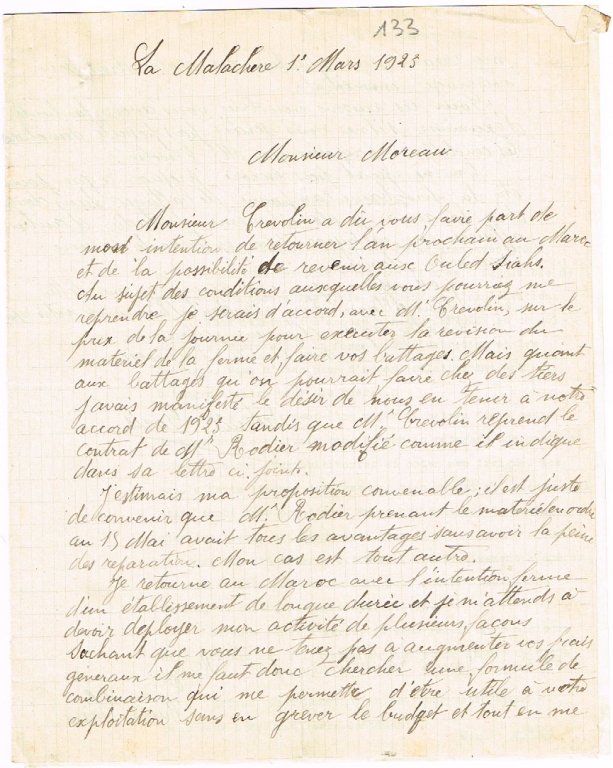 133
La Malachère 1er Mars 1925
Monsieur Moreau
Monsieur Crevolin a dû vous faire part de
mon intention de retourner l'an prochain au Maroc
et de la possibilité de revenir aux Ouled Siahs.
Au sujet des conditions auxquelles vous pourrez me
reprendre je serais d'accord, avec Mr Crevolin, sur le
prix de la journée pour executer la revision du
matériel de la ferme et faire vos battages. Mais quant
aux battages qu'on pourrait faire chez des tiers
j'avais manifesté le désir de nous en tenir à notre
accord de 1925 tandis que Mr Crevolin reprend le
contrat de Mr Rodier modifié comme il indique
dans sa lettre ci-joint.
J'estimais ma proposition convenable ; il est juste
de convenir que Mr Rodier prenant le matériel en ordre
au 15 Mai avait tous les avantages sans avoir la peine
des reparation. Mon cas est tout autre.
Je retourne au Maroc avec l'intention ferme
d'un établissement de longue durée et je m'attends à
devoir deployer mon activité de plusieurs façons
Sachant que vous ne tenez pas à augmenter vos frais
generaux il me faut donc chercher une formule de
combinaison qui me permette d'être utile à votre
exploitation sans en grever le budget et tout en me